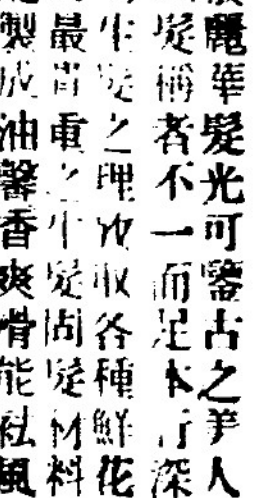 麗華髮光可鑒古之美人
髮稱者不一而足本行深
生髮之理故取各種鮮花
最貴重之生髮固髮材料
製成油馨香爽骨能祛風